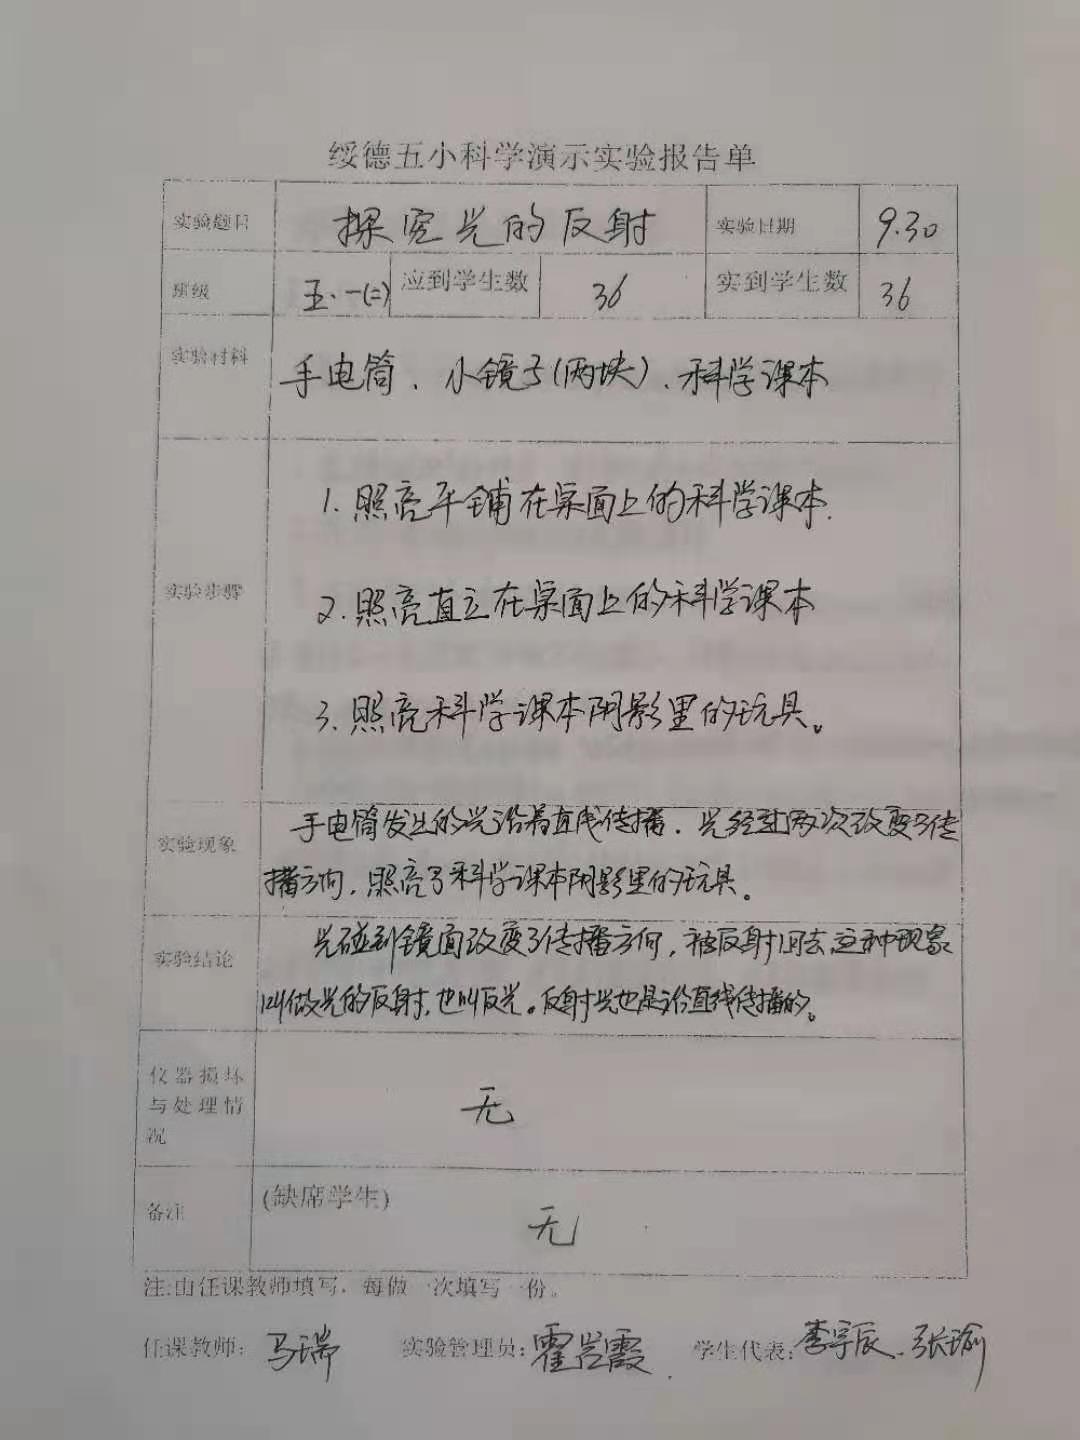 绥德五小科学演示实验报告单
实验题目 探究光的反射 实验日期 9.30
班级 五·一(二) 应到学生数 36 实到学生数 36
实验材料 手电筒、小镜子(两块)、科学课本
1.照亮平铺在桌面上的科学课本.
实验步骤
2.照亮直立在桌面上的科学课本
3.照亮科学课本阴影里的玩具。
实验现象 手电筒发出的光沿着直线传播.光经过两次改变了传
播方向,照亮了科学课本阴影里的玩具。
实验结论 光碰到镜面改变了传播方向,被反射回去,这种现象
叫做光的反射,也叫反光。反射光也是沿直线传播的。
仪器损坏
与处理情
况
无
备注 (缺席学生)
无
注:由任课教师填写,每做一次填写一份。
任课教师: 马瑞 实验管理员: 霍 霞 学生代表: 李宇辰、张瑜